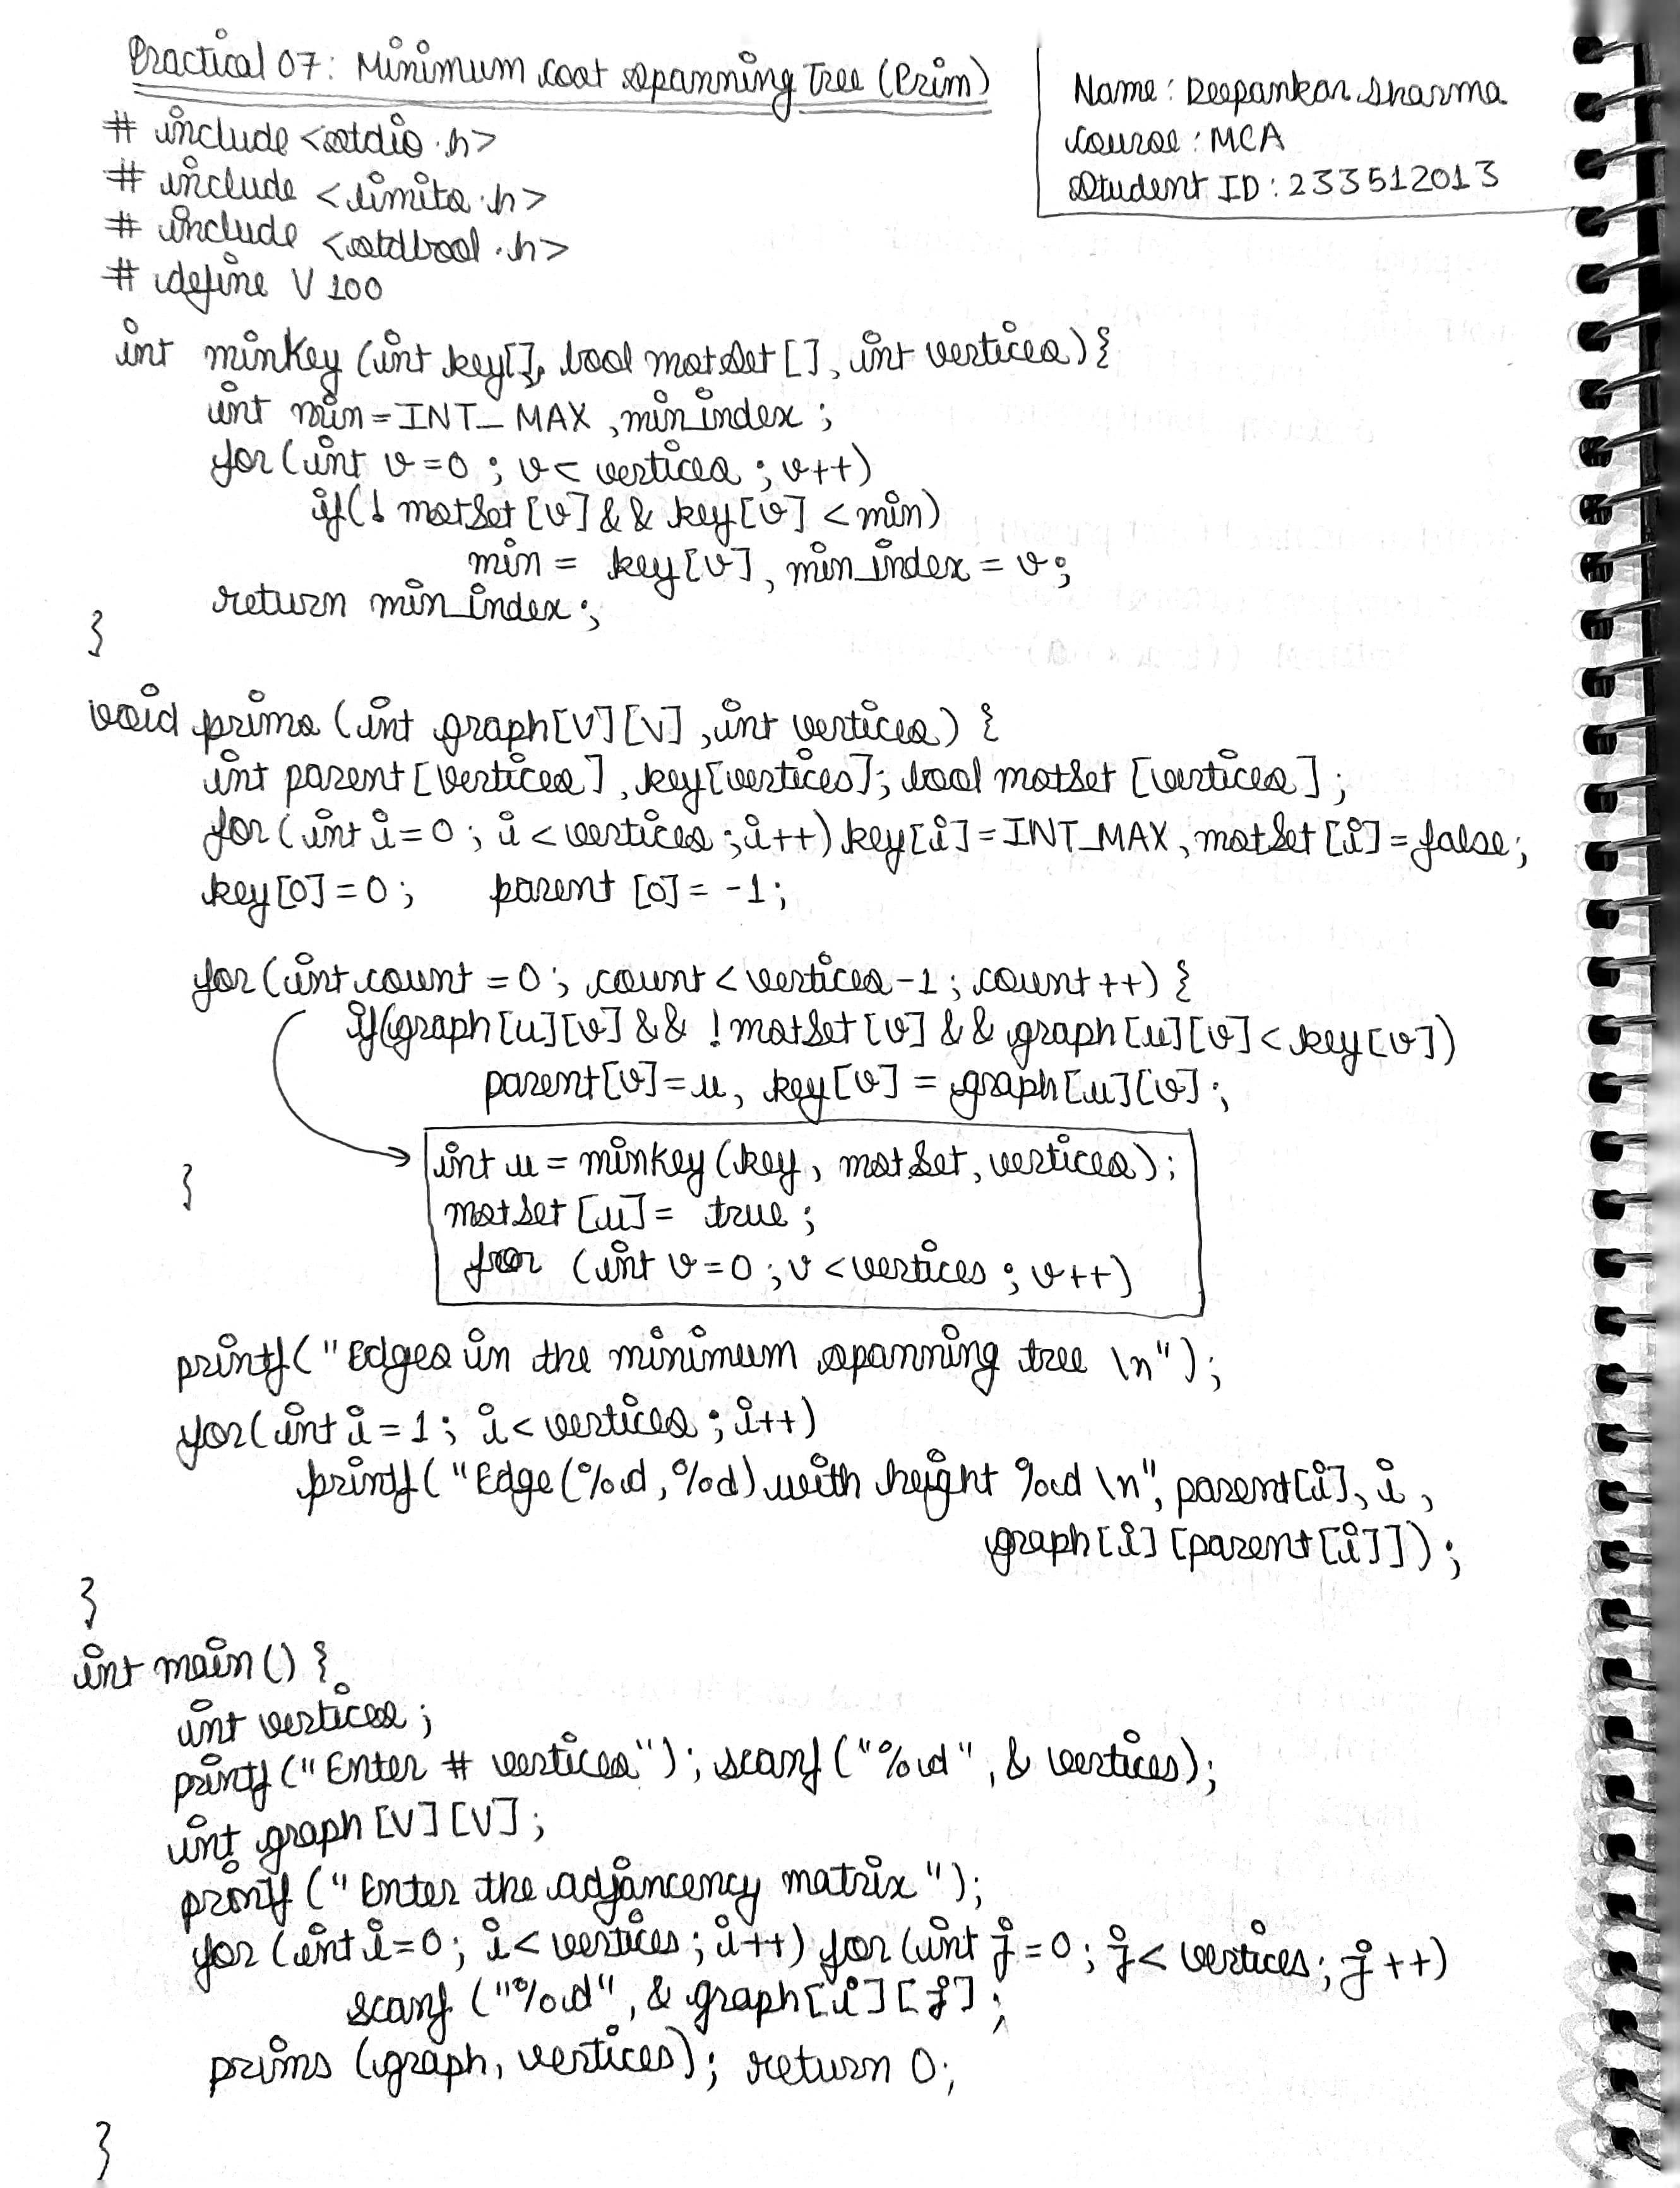 Practical 07: Minimum Cost Spanning Tree (Prim)
Name: Deepankar Sharma
Course: MCA
Student ID: 233512013
# include <stdio.h>
# include <limits.h>
# include <stdbool.h>
# define V 100
int minKey (int key[], bool mstSet [], int vertices) {
int min = INT_MAX, min_index;
for (int v=0; v< vertices; v++)
if (! mstSet [v] && key[v] < min)
min = key[v], min_index = v;
return min_index;
}
void prims (int graph[V][V], int vertices) {
int parent [vertices], key[vertices]; bool mstSet [vertices];
for (int i=0; i < vertices; i++) key[i] = INT_MAX, mstSet [i] = false;
key[0]=0; parent [0] = -1;
for (int count = 0; count < vertices-1; count ++) {
if (graph[u][v] && ! mstSet [v] && graph[u][v] < key[v])
parent[v] = u, key[v] = graph[u][v];
int u = minkey (key, mstSet, vertices);
mstSet [u] = true;
for (int v=0; v < vertices; v++)
}
printf ("Edges in the minimum spanning tree \n");
for (int i = 1; i < vertices; i++)
printf ("Edge (%d, %d) with height %d \n", parent[i], i,
graph[i][parent[i]]);
}
int main () {
int vertices;
printf ("Enter # vertices"); scanf ("%d", & vertices);
int graph [V][V];
printf ("Enter the adjancency matrix");
for (int i=0; i < vertices; i++) for (int j=0; j< vertices; j++)
scanf ("%d", & graph[i][j];
prims (graph, vertices); return 0;
}